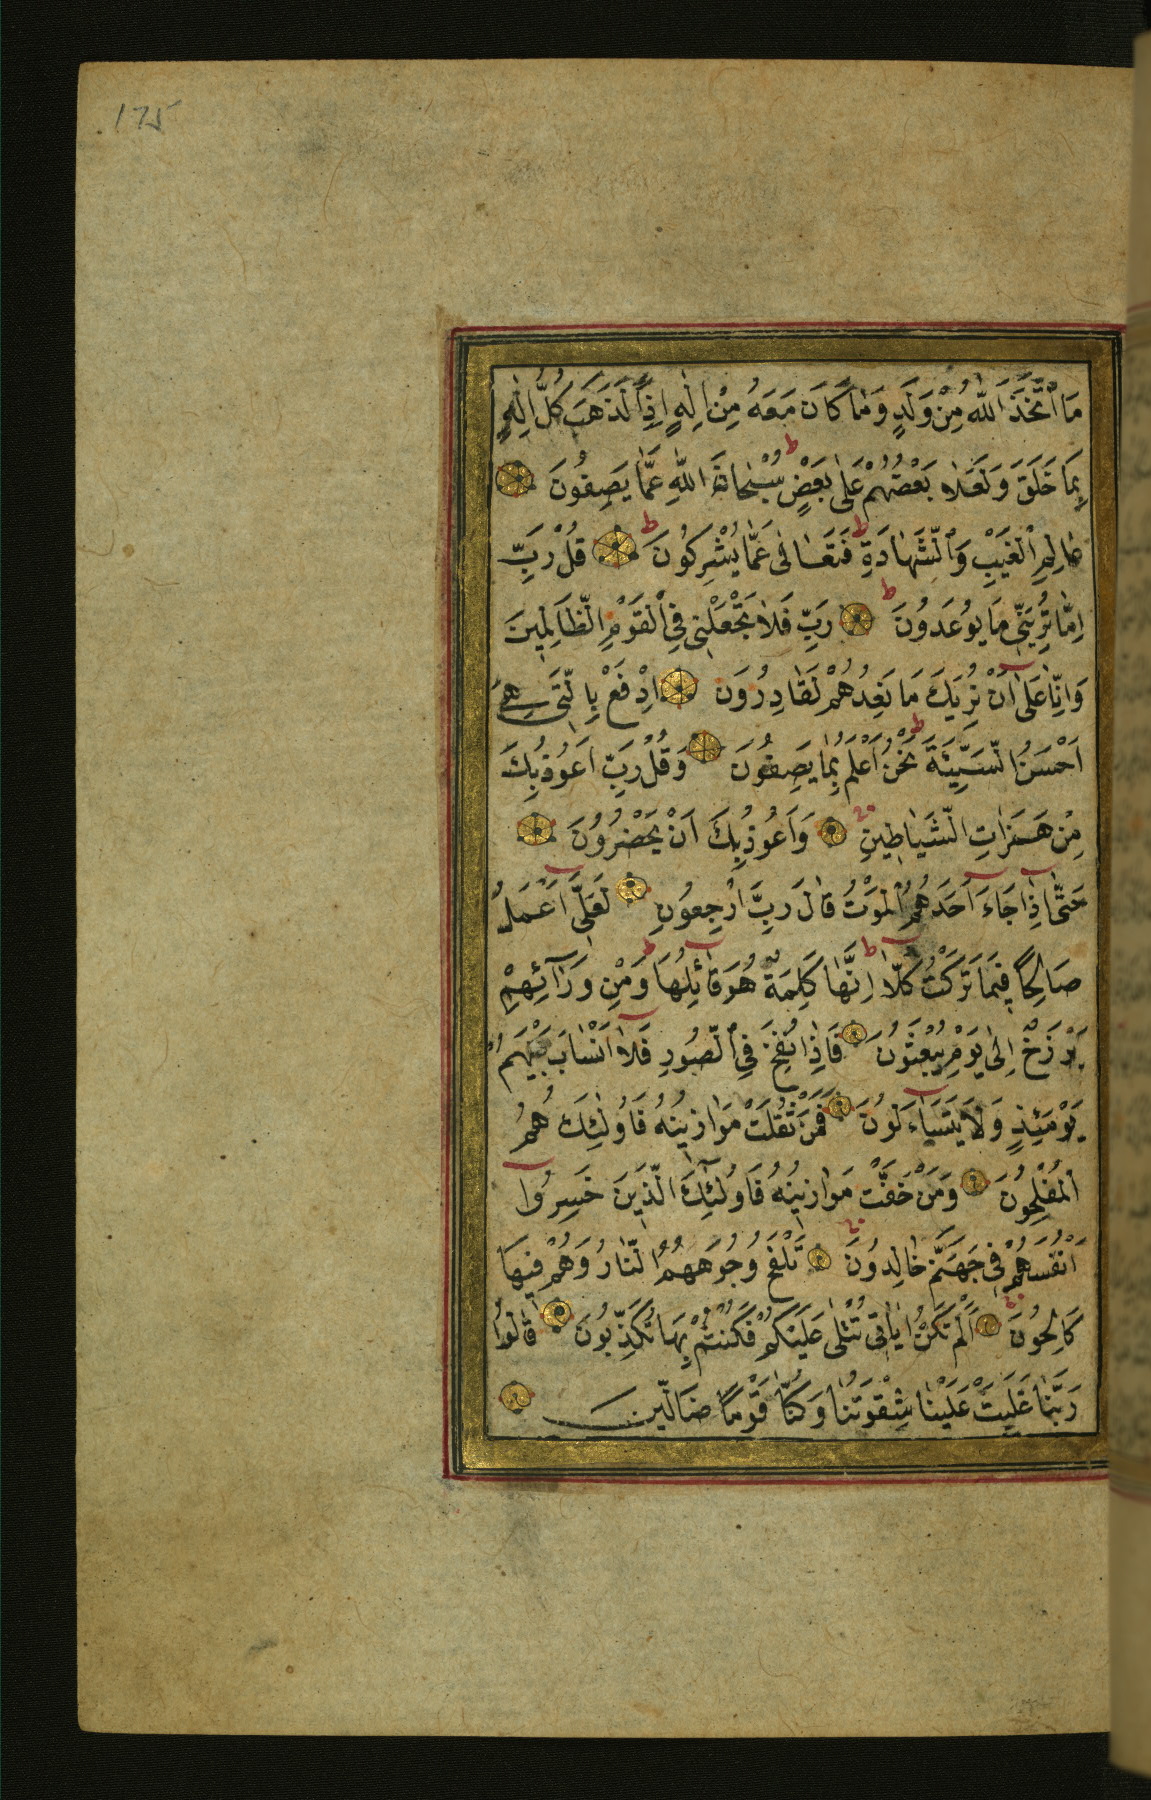 175
مَا اتَّخَذَ اللّٰهُ مِنْ وَلَدٍ وَمَا كَانَ مَعَهُ مِنْ اِلٰهٍ اِذًا لَذَهَبَ كُلُّ اِلٰهٍ
بِمَا خَلَقَ وَلَعَلَا بَعْضُهُمْ عَلٰى بَعْضٍ ط سُبْحَانَ اللّٰهِ عَمَّا يَصِفُونَ
عَالِمِ الْغَيْبِ وَالشَّهَادَةِ ط فَتَعَالٰى عَمَّا يُشْرِكُونَ ط قُلْ رَبِّ
اِمَّا تُرِيَنِّي مَا يُوعَدُونَ ط رَبِّ فَلَا تَجْعَلْنِي فِي الْقَوْمِ الظَّالِمِينَ
وَاِنَّا عَلٰى اَنْ نُرِيَكَ مَا نَعِدُهُمْ لَقَادِرُونَ اِدْفَعْ بِالَّتِي هِيَ
اَحْسَنُ السَّيِّئَةَ ط نَحْنُ اَعْلَمُ بِمَا يَصِفُونَ وَقُلْ رَبِّ اَعُوذُ بِكَ
مِنْ هَمَزَاتِ الشَّيَاطِينِ وَاَعُوذُ بِكَ اَنْ يَحْضُرُونَ
حَتّٰى اِذَا جَاءَ اَحَدَهُمُ الْمَوْتُ قَالَ رَبِّ ارْجِعُونِ لَعَلِّي اَعْمَلُ
صَالِحًا فِيمَا تَرَكْتُ كَلَّا ط اِنَّهَا كَلِمَةٌ هُوَ قَائِلُهَا ط وَمِنْ وَرَائِهِمْ
بَرْزَخٌ اِلٰى يَوْمِ يُبْعَثُونَ فَاِذَا نُفِخَ فِي الصُّورِ فَلَا اَنْسَابَ بَيْنَهُمْ
يَوْمَئِذٍ وَلَا يَتَسَاءَلُونَ فَمَنْ ثَقُلَتْ مَوَازِينُهُ فَاُولٰئِكَ هُمُ
الْمُفْلِحُونَ وَمَنْ خَفَّتْ مَوَازِينُهُ فَاُولٰئِكَ الَّذِينَ خَسِرُوا
اَنْفُسَهُمْ فِي جَهَنَّمَ خَالِدُونَ تَلْفَحُ وُجُوهَهُمُ النَّارُ وَهُمْ فِيهَا
كَالِحُونَ اَلَمْ تَكُنْ اٰيَاتِي تُتْلٰى عَلَيْكُمْ فَكُنْتُمْ بِهَا تُكَذِّبُونَ قَالُوا
رَبَّنَا غَلَبَتْ عَلَيْنَا شِقْوَتُنَا وَكُنَّا قَوْمًا ضَالِّينَ